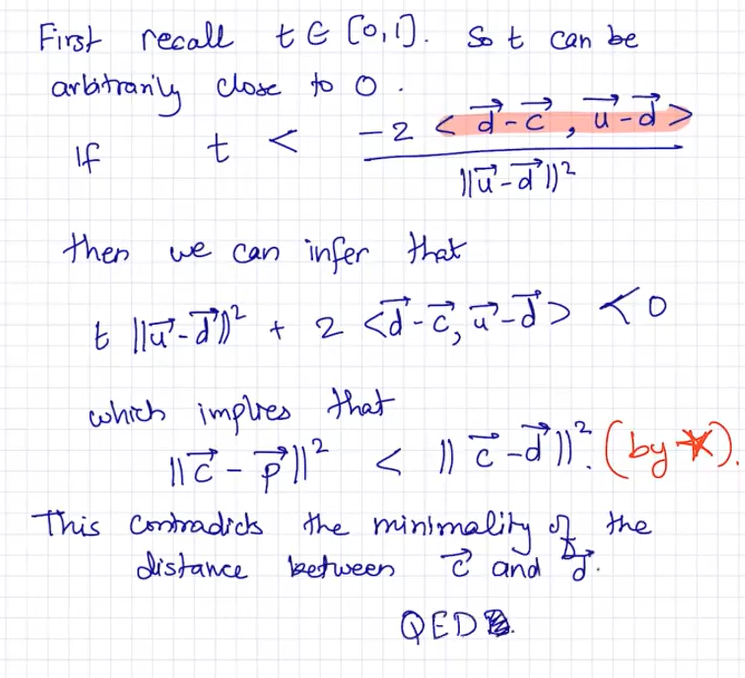 First recall t ∈ [0,1]. So t can be
arbitrarily close to 0.
If t < -2 <d⃗-c⃗, u⃗-d⃗> / ||u⃗-d⃗||²
then we can infer that
t ||u⃗-d⃗||² + 2 <d⃗-c⃗, u⃗-d⃗> < 0
which implies that
||c⃗ - p⃗||² < ||c⃗-d⃗||². (by ★).
This contradicts the minimality of the
distance between c⃗ and d⃗.
QED